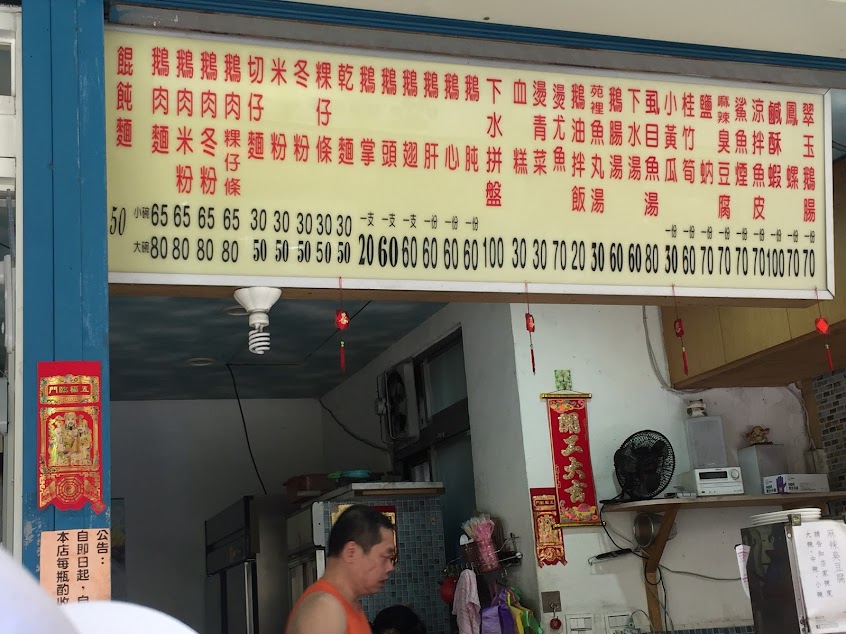 餛飩麵 50
鵝肉麵 小碗 65 大碗 80
鵝肉米粉 65 80
鵝肉冬粉 65 80
鵝肉粿仔條 65 80
切仔麵 30 50
米粉 30 50
冬粉 30 50
粿仔條 30 50
乾麵 30 50
鵝掌 一支 20
鵝頭 一支 60
鵝翅 一支 60
鵝肝 一份 60
鵝心 一份 60
鵝肫 一份 60
下水拼盤 100
血糕 30
燙青菜 30
燙尤魚 70
鵝油拌飯 20
苑裡魚丸湯 30
鵝腸湯 60
下水湯 60
虱目魚湯 80
小黃瓜 一份 30
桂竹筍 一份 60
鹽蚋 一份 70
麻辣臭豆腐 一份 70
鯊魚煙 一份 70
涼拌魚皮 一份 70
鹹酥蝦 一份 100
鳳螺 一份 70
翠玉鵝腸 一份 70
五福臨門
開工大吉
公告：
自即日起，自
本店每瓶酌收
麻辣臭豆腐